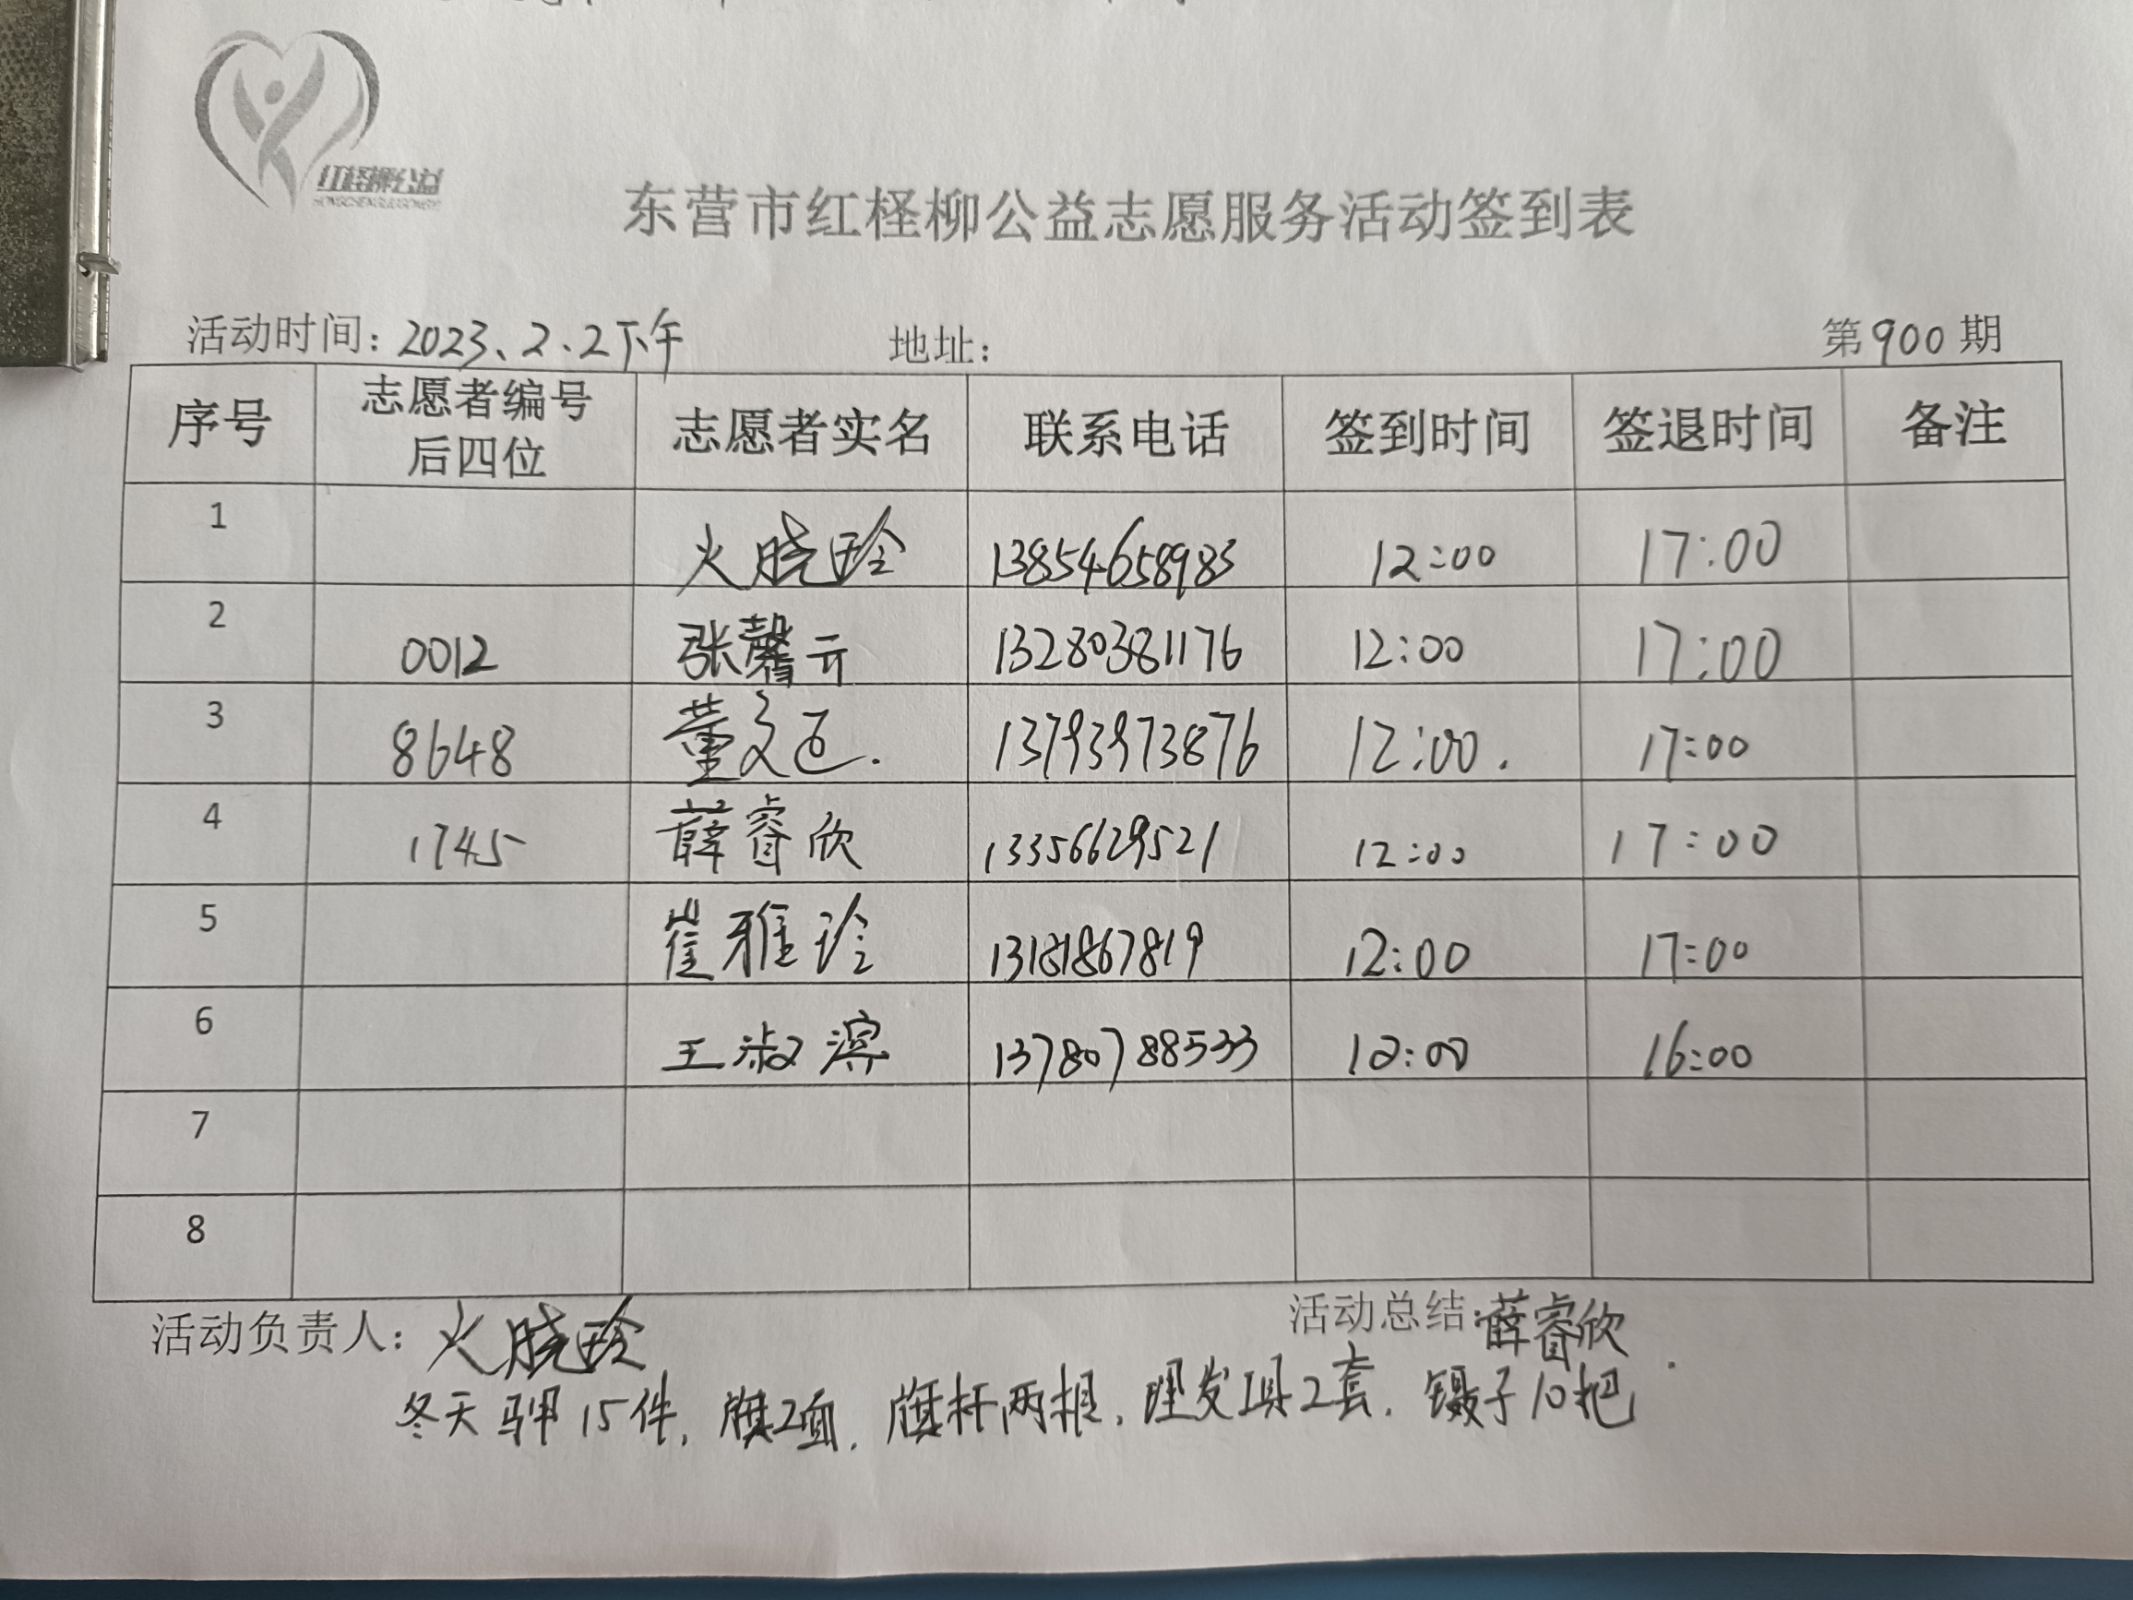 红柽柳公益
东营市红柽柳公益志愿服务活动签到表
活动时间：2023、2、2下午 地址： 第900期
序号 志愿者编号后四位 志愿者实名 联系电话 签到时间 签退时间 备注
1 火晓玲 13854658983 12:00 17:00
2 0012 张馨元 13280381176 12:00 17:00
3 8648 董文 13793973876 12:00. 17:00
4 1745 薛睿欣 13356629521 12:00 17:00
5 崔雅玲 13181867819 12:00 17:00
6 王淑滨 13780788533 12:00 16:00
7
8
活动负责人：火晓玲 活动总结：薛睿欣
冬天马甲15件，旗2面，旗杆两根，理发工具2套，镊子10把